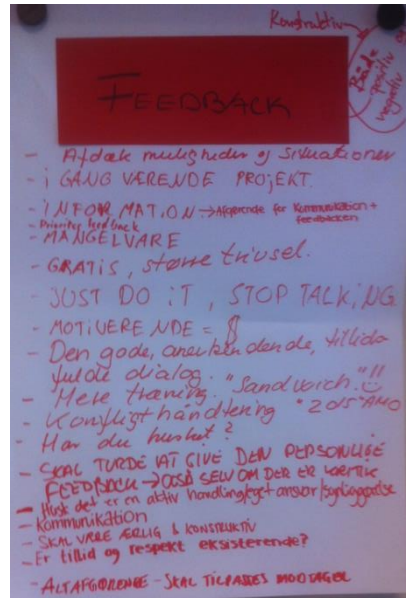 Konstruktiv
Både
positiv
negativ
FEEDBACK
- Afdæk muligheder og situationer
- i GANG VÆRENDE PROJEKT.
- INFORMATION → Afgørende for kommunikation + feedbacken
- Prioriter feedback
- MANGELVARE
- GRATIS, større trivsel.
- JUST DO iT, STOP TALKiNG
- MOTIVERENDE =
- Den gode, anerkendende, tillids
fulde dialog. "Sandwich"!!
- Mere træning.
- Konflikthåndtering "2015" AMO
- Har du husket?
- SKAL TURDE AT GIVE DEN PERSONLIGE
FEEDBACK → OGSÅ SELV OM DER ER KRITIK
- Husk det er en aktiv handling/eget ansvar/synliggørelse
- Kommunikation
- SKAL VÆRE ÆRLIG & KONSTRUKTIV
- Er tillid og respekt eksisterende?
- ALTAFGØRENDE - SKAL TILPASSES MODTAGER